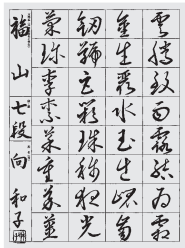 雲騰致雨露結為霜
金生麗水玉出崐岡
劔號巨闕珠称夜光
菓珍李柰菜重芥薑
福山七段向和子